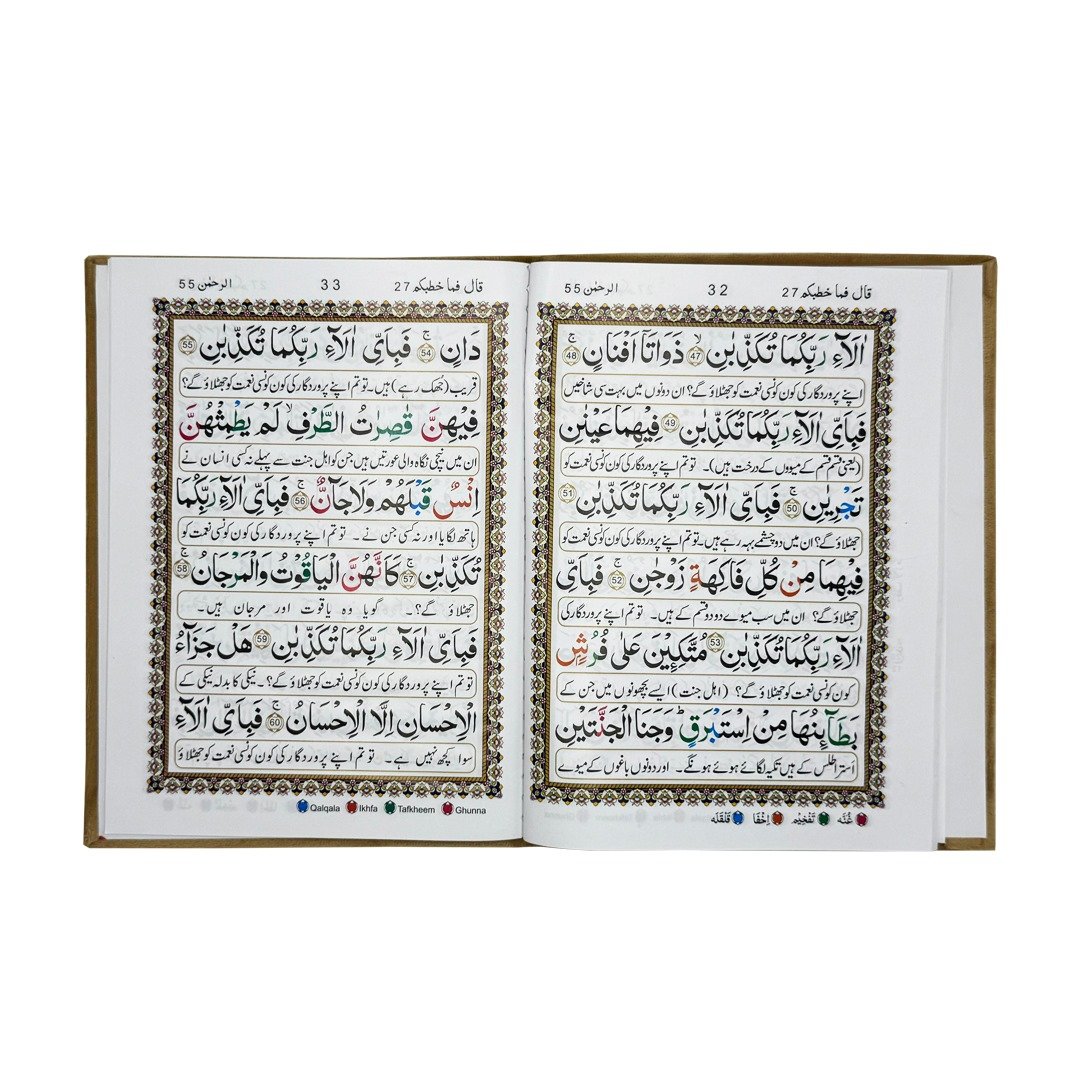 قال فما خطبكم 27 32 الرحمٰن 55
اٰلَآءِ رَبِّكُمَا تُكَذِّبٰنِ ۙ 47 ذَوَاتَاۤ اَفْنَانٍ ۚ 48
اپنے پروردگار کی کون کونسی نعمت کو جھٹلاؤ گے؟ ان دونوں میں بہت سی شاخیں
فَبِاَيِّ اٰلَآءِ رَبِّكُمَا تُكَذِّبٰنِ 49 فِيْهِمَا عَيْنٰنِ
(یعنی قسم قسم کے میووں کے درخت ہیں)۔ تو تم اپنے پروردگار کی کون کونسی نعمت کو
تَجْرِيٰنِ ۚ 50 فَبِاَيِّ اٰلَآءِ رَبِّكُمَا تُكَذِّبٰنِ 51
جھٹلاؤ گے؟ ان میں دو چشمے بہہ رہے ہیں۔ تو تم اپنے پروردگار کی کون کونسی نعمت کو
فِيْهِمَا مِنْ كُلِّ فَاكِهَةٍ زَوْجٰنِ ۚ 52 فَبِاَيِّ
جھٹلاؤ گے؟ ان میں سب میوے دو دو قسم کے ہیں۔ تو تم اپنے پروردگار کی
اٰلَآءِ رَبِّكُمَا تُكَذِّبٰنِ 53 مُتَّكِـِٕيْنَ عَلٰى فُرُشٍۭ
کون کونسی نعمت کو جھٹلاؤ گے؟ (اہل جنت) ایسے بچھونوں میں جن کے
بَطَآىِٕنُهَا مِنْ اِسْتَبْرَقٍ ؕ وَجَنَا الْجَنَّتَيْنِ
استر اطلس کے ہیں تکیہ لگائے ہوئے ہونگے۔ اور دونوں باغوں کے میوے
غُنَّه تَفْخِيْم اِخْفَا قَلْقَلَه
قال فما خطبكم 27 33 الرحمٰن 55
دَانٍ ۚ 54 فَبِاَيِّ اٰلَآءِ رَبِّكُمَا تُكَذِّبٰنِ 55
قریب (جھک رہے) ہیں۔ تو تم اپنے پروردگار کی کون کونسی نعمت کو جھٹلاؤ گے؟
فِيْهِنَّ قٰصِرٰتُ الطَّرْفِ ۙ لَمْ يَطْمِثْهُنَّ
ان میں نیچی نگاہ والی عورتیں ہیں جن کو اہل جنت سے پہلے نہ کسی انسان نے
اِنْسٌ قَبْلَهُمْ وَلَا جَآنٌّ ۚ 56 فَبِاَيِّ اٰلَآءِ رَبِّكُمَا
ہاتھ لگایا اور نہ کسی جن نے۔ تو تم اپنے پروردگار کی کون کونسی نعمت کو
تُكَذِّبٰنِ ۚ 57 كَاَنَّهُنَّ الْيَاقُوْتُ وَالْمَرْجَانُ ۚ 58
جھٹلاؤ گے؟۔ گویا وہ یاقوت اور مرجان ہیں۔
فَبِاَيِّ اٰلَآءِ رَبِّكُمَا تُكَذِّبٰنِ 59 هَلْ جَزَآءُ
تو تم اپنے پروردگار کی کون کونسی نعمت کو جھٹلاؤ گے؟۔ نیکی کا بدلہ نیکی کے
الْاِحْسَانِ اِلَّا الْاِحْسَانُ ۚ 60 فَبِاَيِّ اٰلَآءِ
سوا کچھ نہیں ہے۔ تو تم اپنے پروردگار کی کون کونسی نعمت کو جھٹلاؤ
Qalqala Ikhfa Tafkheem Ghunna